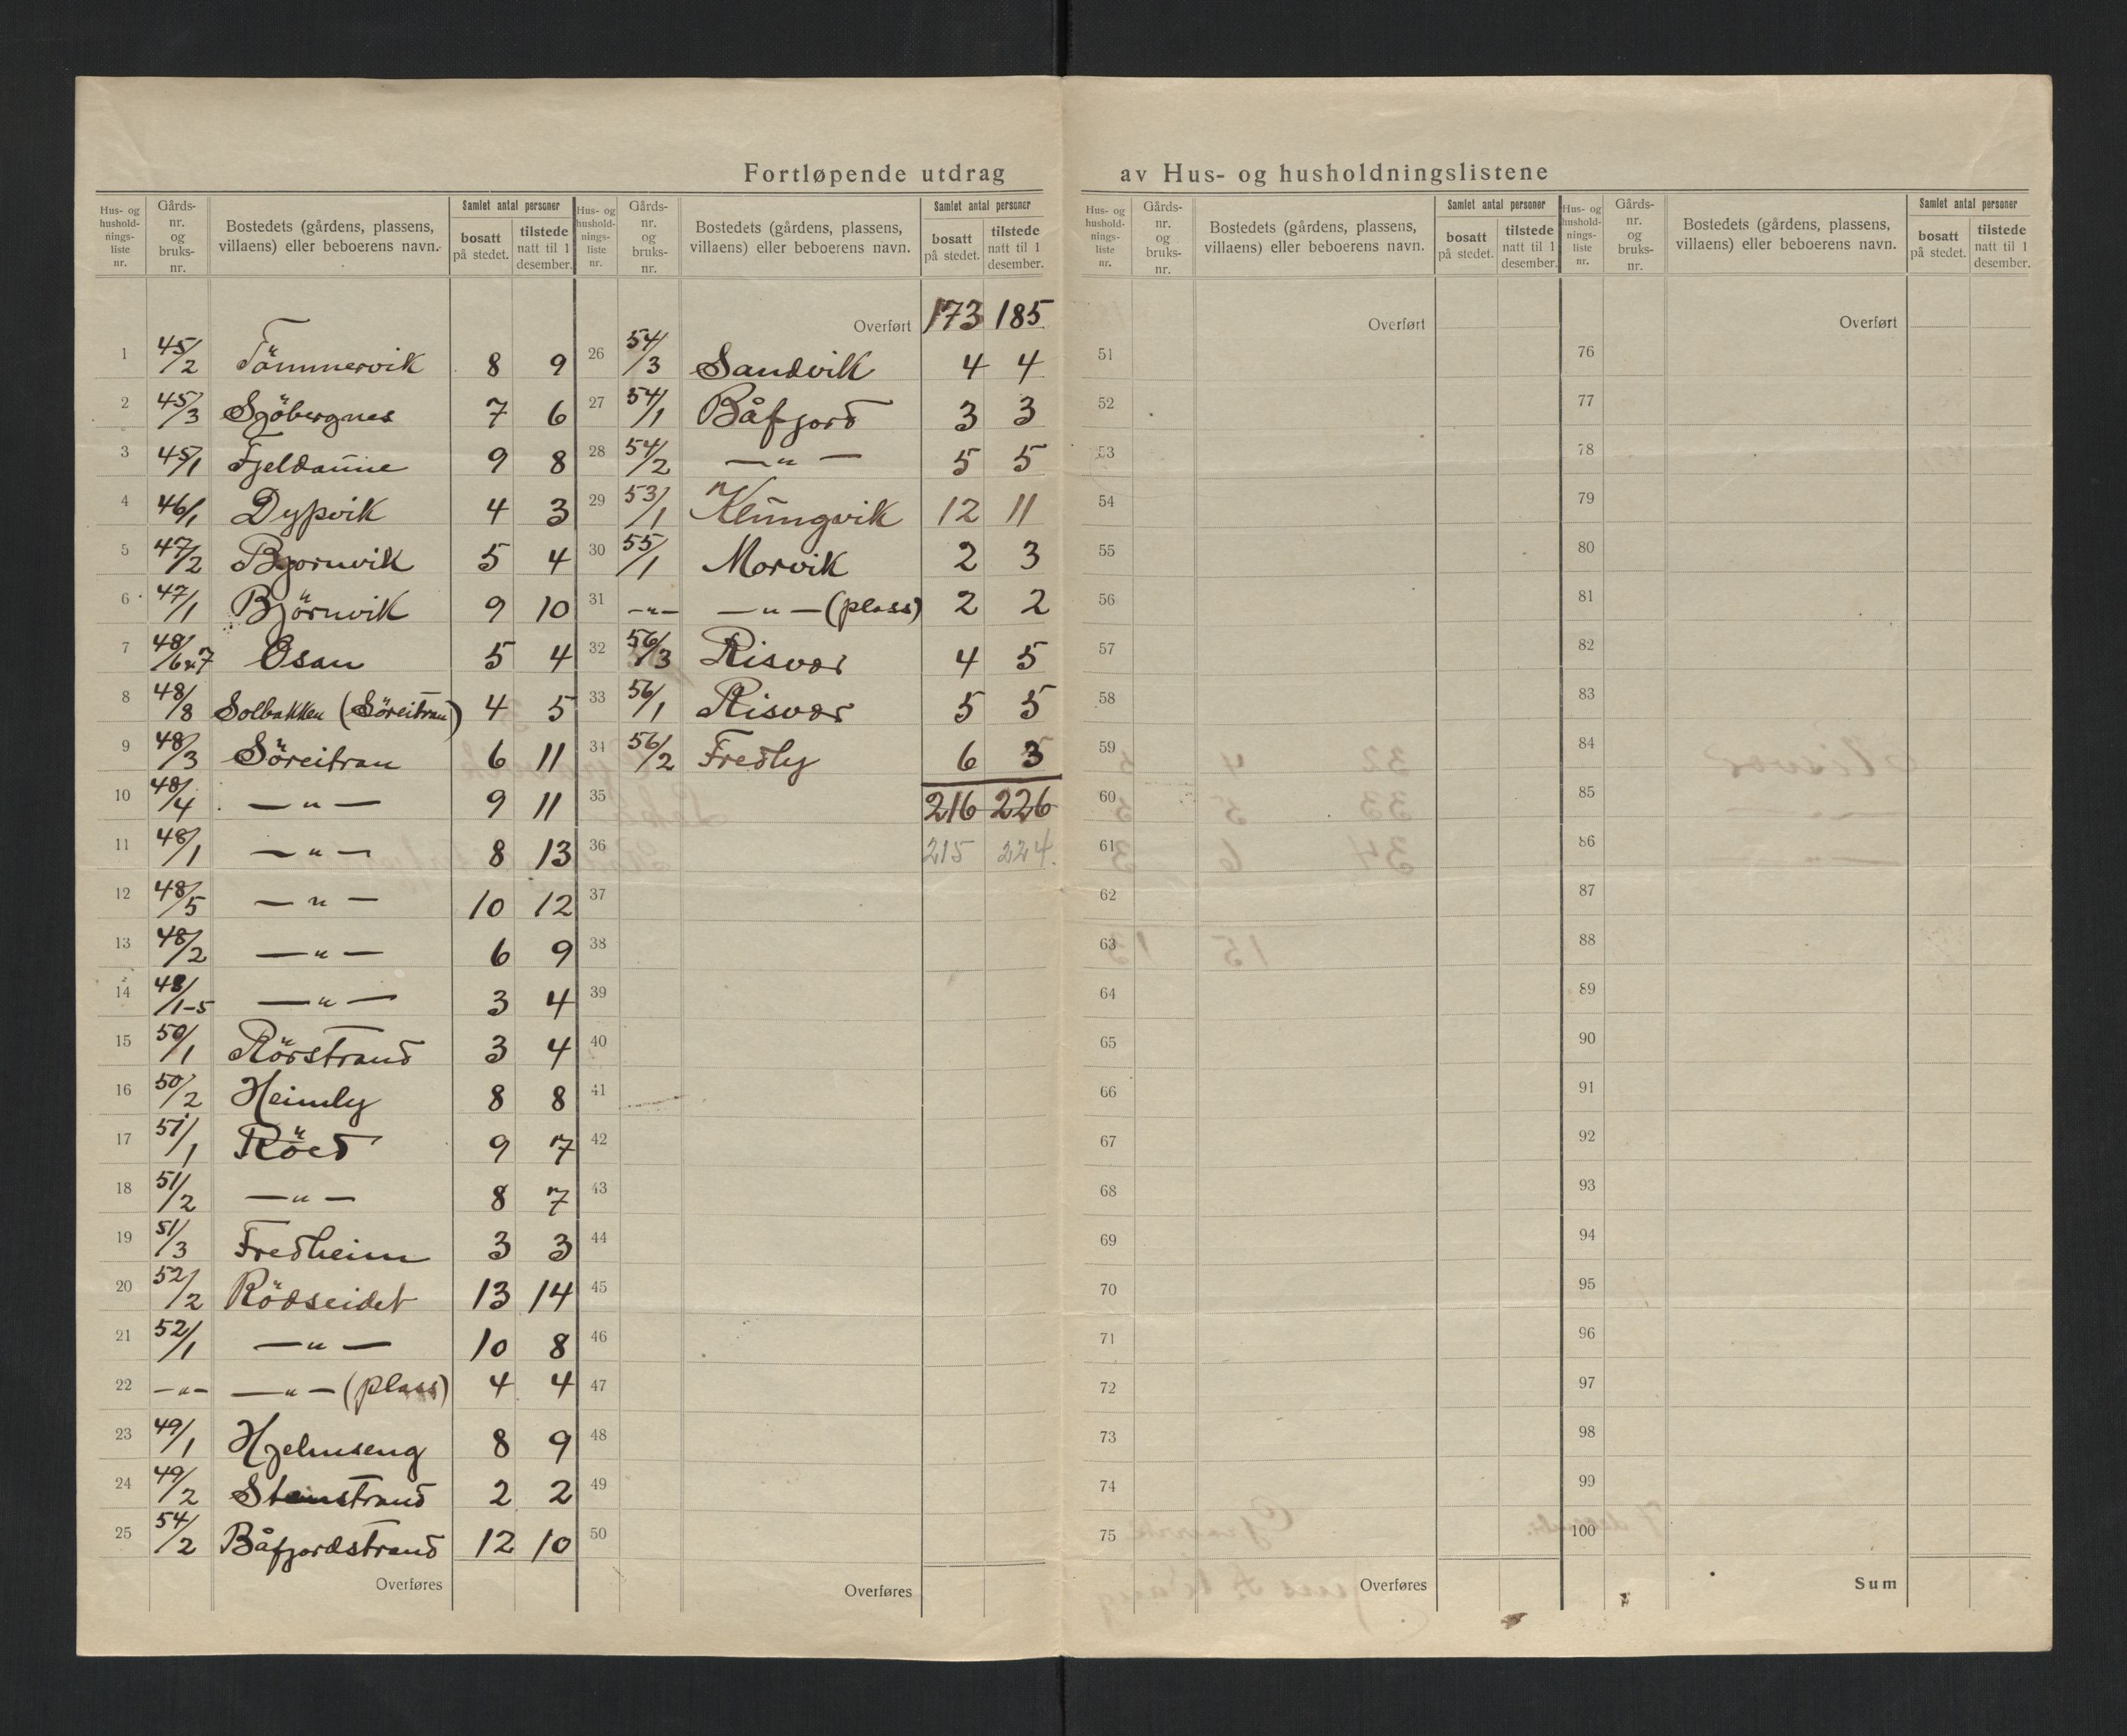 Fortløpende utdrag av Hus- og husholdningslistene
Hus- og hushold- nings- liste nr. | Gårds- nr. og bruks- nr. | Bostedets (gårdens, plassens, villaens) eller beboerens navn. | Samlet antal personer | bosatt på stedet. | tilstede natt til 1 desember.
1 45/2 Tömmervik 8 9
2 45/3 Sjöbergnes 7 6
3 45/1 Fjeldaune 9 8
4 46/1 Dypvik 4 3
5 47/2 Bjornvik 5 4
6 47/1 Björnvik 9 10
7 48/6 & 7 Osan 5 4
8 48/8 Solbakken (Söreitran) 4 5
9 48/3 Söreitran 6 11
10 48/4 — " — 9 11
11 48/1 — " — 8 13
12 48/5 — " — 10 12
13 48/2 — " — 6 9
14 48/1-5 — " — 3 4
15 50/1 Rörstrand 3 4
16 50/2 Heimly 8 8
17 51/1 Röed 9 7
18 51/2 — " — 8 7
19 51/3 Fredheim 3 3
20 52/2 Rödseidet 13 14
21 52/1 — " — 10 8
22 - " - — " — (plass) 4 4
23 49/1 Hjelmseng 8 9
24 49/2 Stenstrand 2 2
25 54/2 Båfjordstrand 12 10
Overføres
Hus- og hushold- nings- liste nr. | Gårds- nr. og bruks- nr. | Bostedets (gårdens, plassens, villaens) eller beboerens navn. | Samlet antal personer | bosatt på stedet. | tilstede natt til 1 desember.
Overført 173 185
26 54/3 Sandvik 4 4
27 54/1 Båfjord 3 3
28 54/2 — " — 5 5
29 53/1 Klüngvik 12 11
30 55/1 Morvik 2 3
31 - " - — " — (plass) 2 2
32 56/3 Risvær 4 5
33 56/1 Risvær 5 5
34 56/2 Fredly 6 3
35 216 226
36 215 224.
37
38
39
40
41
42
43
44
45
46
47
48
49
50
Overføres
Hus- og hushold- nings- liste nr. | Gårds- nr. og bruks- nr. | Bostedets (gårdens, plassens, villaens) eller beboerens navn. | Samlet antal personer | bosatt på stedet. | tilstede natt til 1 desember.
Overført
51
52
53
54
55
56
57
58
59
60
61
62
63
64
65
66
67
68
69
70
71
72
73
74
75
Overføres
Hus- og hushold- nings- liste nr. | Gårds- nr. og bruks- nr. | Bostedets (gårdens, plassens, villaens) eller beboerens navn. | Samlet antal personer | bosatt på stedet. | tilstede natt til 1 desember.
Overført
76
77
78
79
80
81
82
83
84
85
86
87
88
89
90
91
92
93
94
95
96
97
98
99
100
Sum